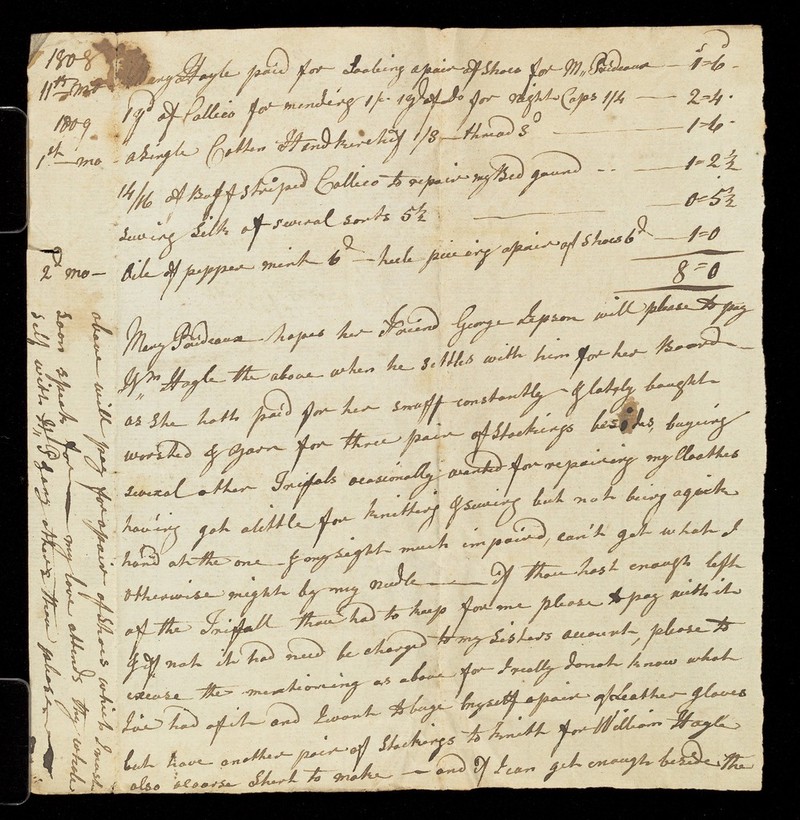 1808
11th mo Mary Hagle paid for Soaleing a pair of Shoes for M,, Prideaux — 1=6
1 yd of Callico for mending 1/- 1 yd of Do for night Caps 1/4 — 2=4
1809
1st mo - a Single Cotten Handkerchief 1/3 — thread 3d — 1=6
14/16 of Buff Striped Callico to repair my Bed gound -- — 1=2½
Sewing Silk of several sorts 5½ — 0=5½
2d mo — Oile of pepper mint 6d — heele pieceing a pair of Shoes 6d — 1=0
8=0
Mary Prideaux hopes her Friend George Jepson will please to pay
Wm Hagle the above when he Settles with him for her Board —
as She hath paid for her snuff constantly & lately bought
worsted & yarn for three pair of Stockings besides, buyeing
several other Trifals ocasionally wanted for repairing my Cloathes
having got a little for knitting & sewing but not being a quick
hand at the one & my sight much impaired, can't get what I
otherwise might by my nedle — if thou hast enough left
of the Trifall thou had to keep for me please to pay with it
& if not it had need be charged to my Sisters account, please to
excuse the mentioning as above for I really donot know what
I've had of it and I want to buye myself a pair of Leather gloves
but have another pair of Stockings to knitt for William Hagle
also a coarse Shirt to make — and if I can get enough beside the
above will pay for a pair of Shoes which I must
soon speek for — my love attends thy whole
self with Wm P & any others thou pleases —